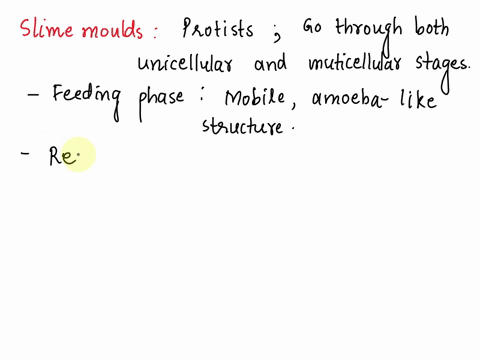 Slime moulds : Protists ; Go through both
unicellular and muticellular stages.
- Feeding phase : Mobile, amoeba-like
structure.
- Re